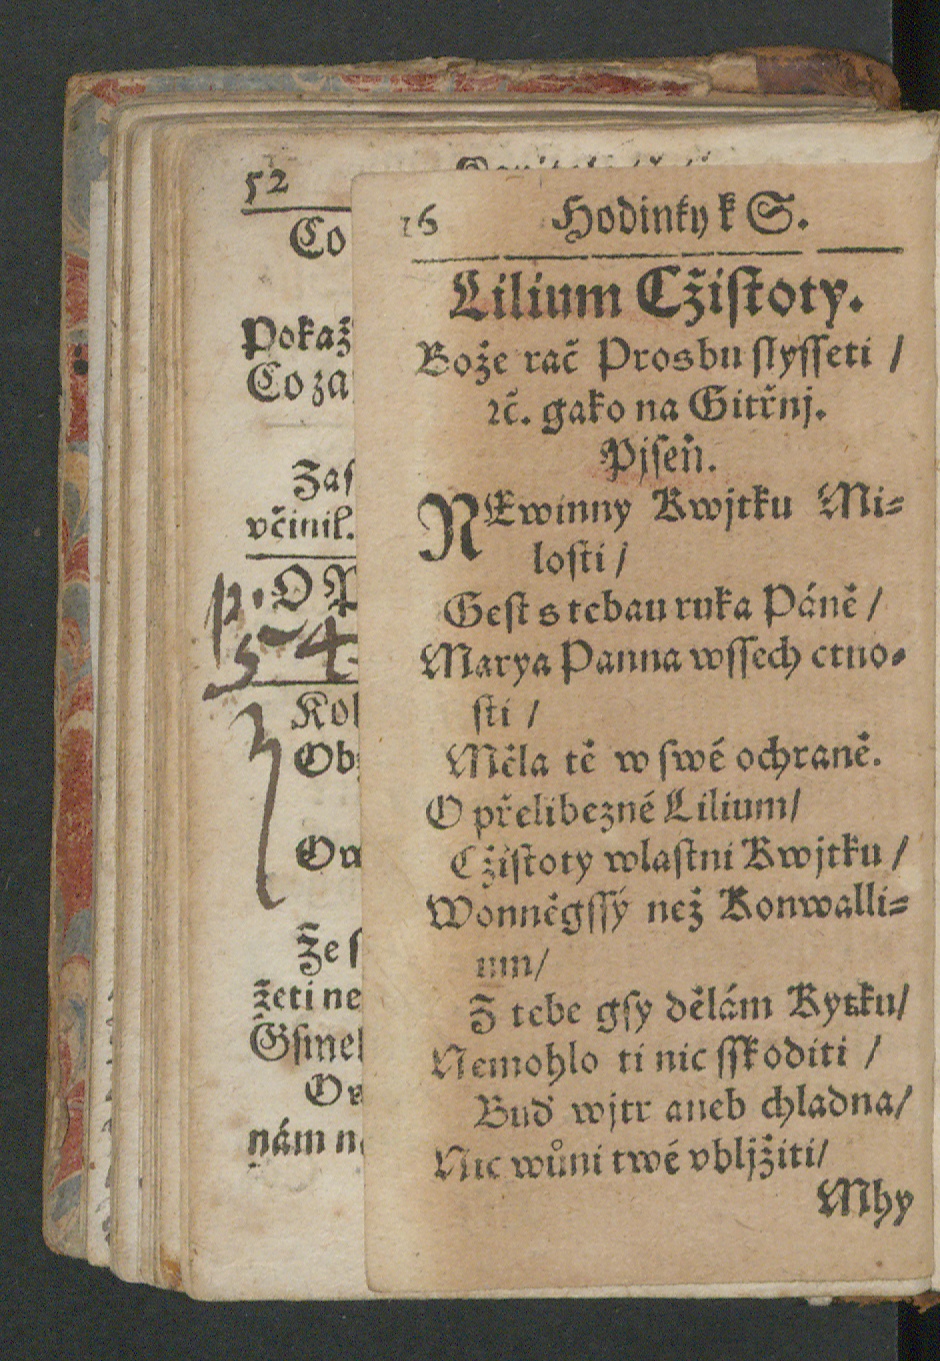 52
Co
Pokaž
Co za
Zas
včinil.
p. O P
5 4.
Kol
Ob
Že s
žeti ne
Gsme
nám n
16 Hodinky k S.
Lilium Cžistoty.
Bože rač Prosbu slysseti /
ꝛč. gako na Gitřnj.
Pjseň.
NEwinny Kwjtku Mi⸗
losti /
Gest s tebau ruka Páně /
Marya Panna wssech ctno⸗
sti /
Měla tě w swé ochraně.
O přelibezné Lilium /
Cžistoty wlastni Kwjtku /
Wonněgssý než Konwalli⸗
um /
Z tebe gsy dělám Kytku /
Nemohlo ti nic sskoditi /
Buď wjtr aneb chladna /
Nic wůni twé vbljžiti /
Mhy